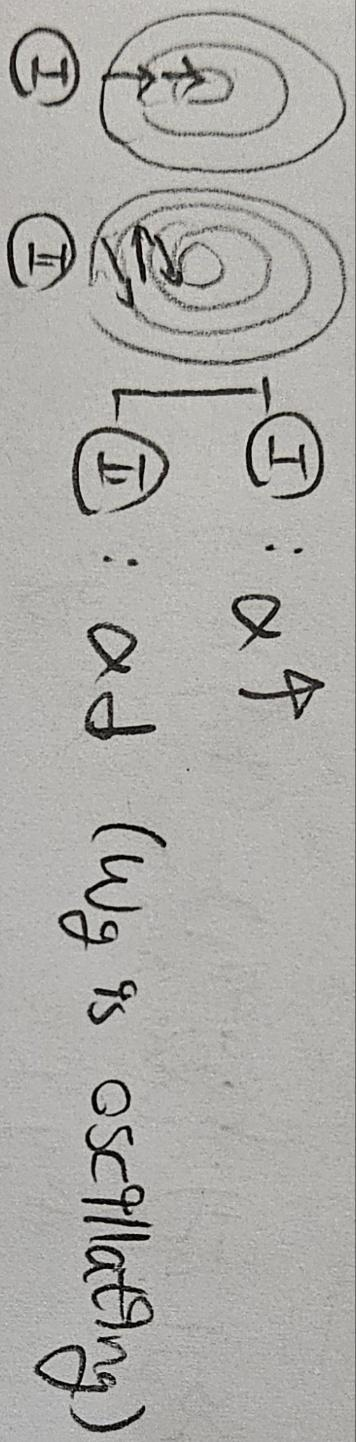 Ⓘ
Ⓘ : α ↑
Ⓘⓘ
Ⓘⓘ : α ↓ (wg is oscillating)